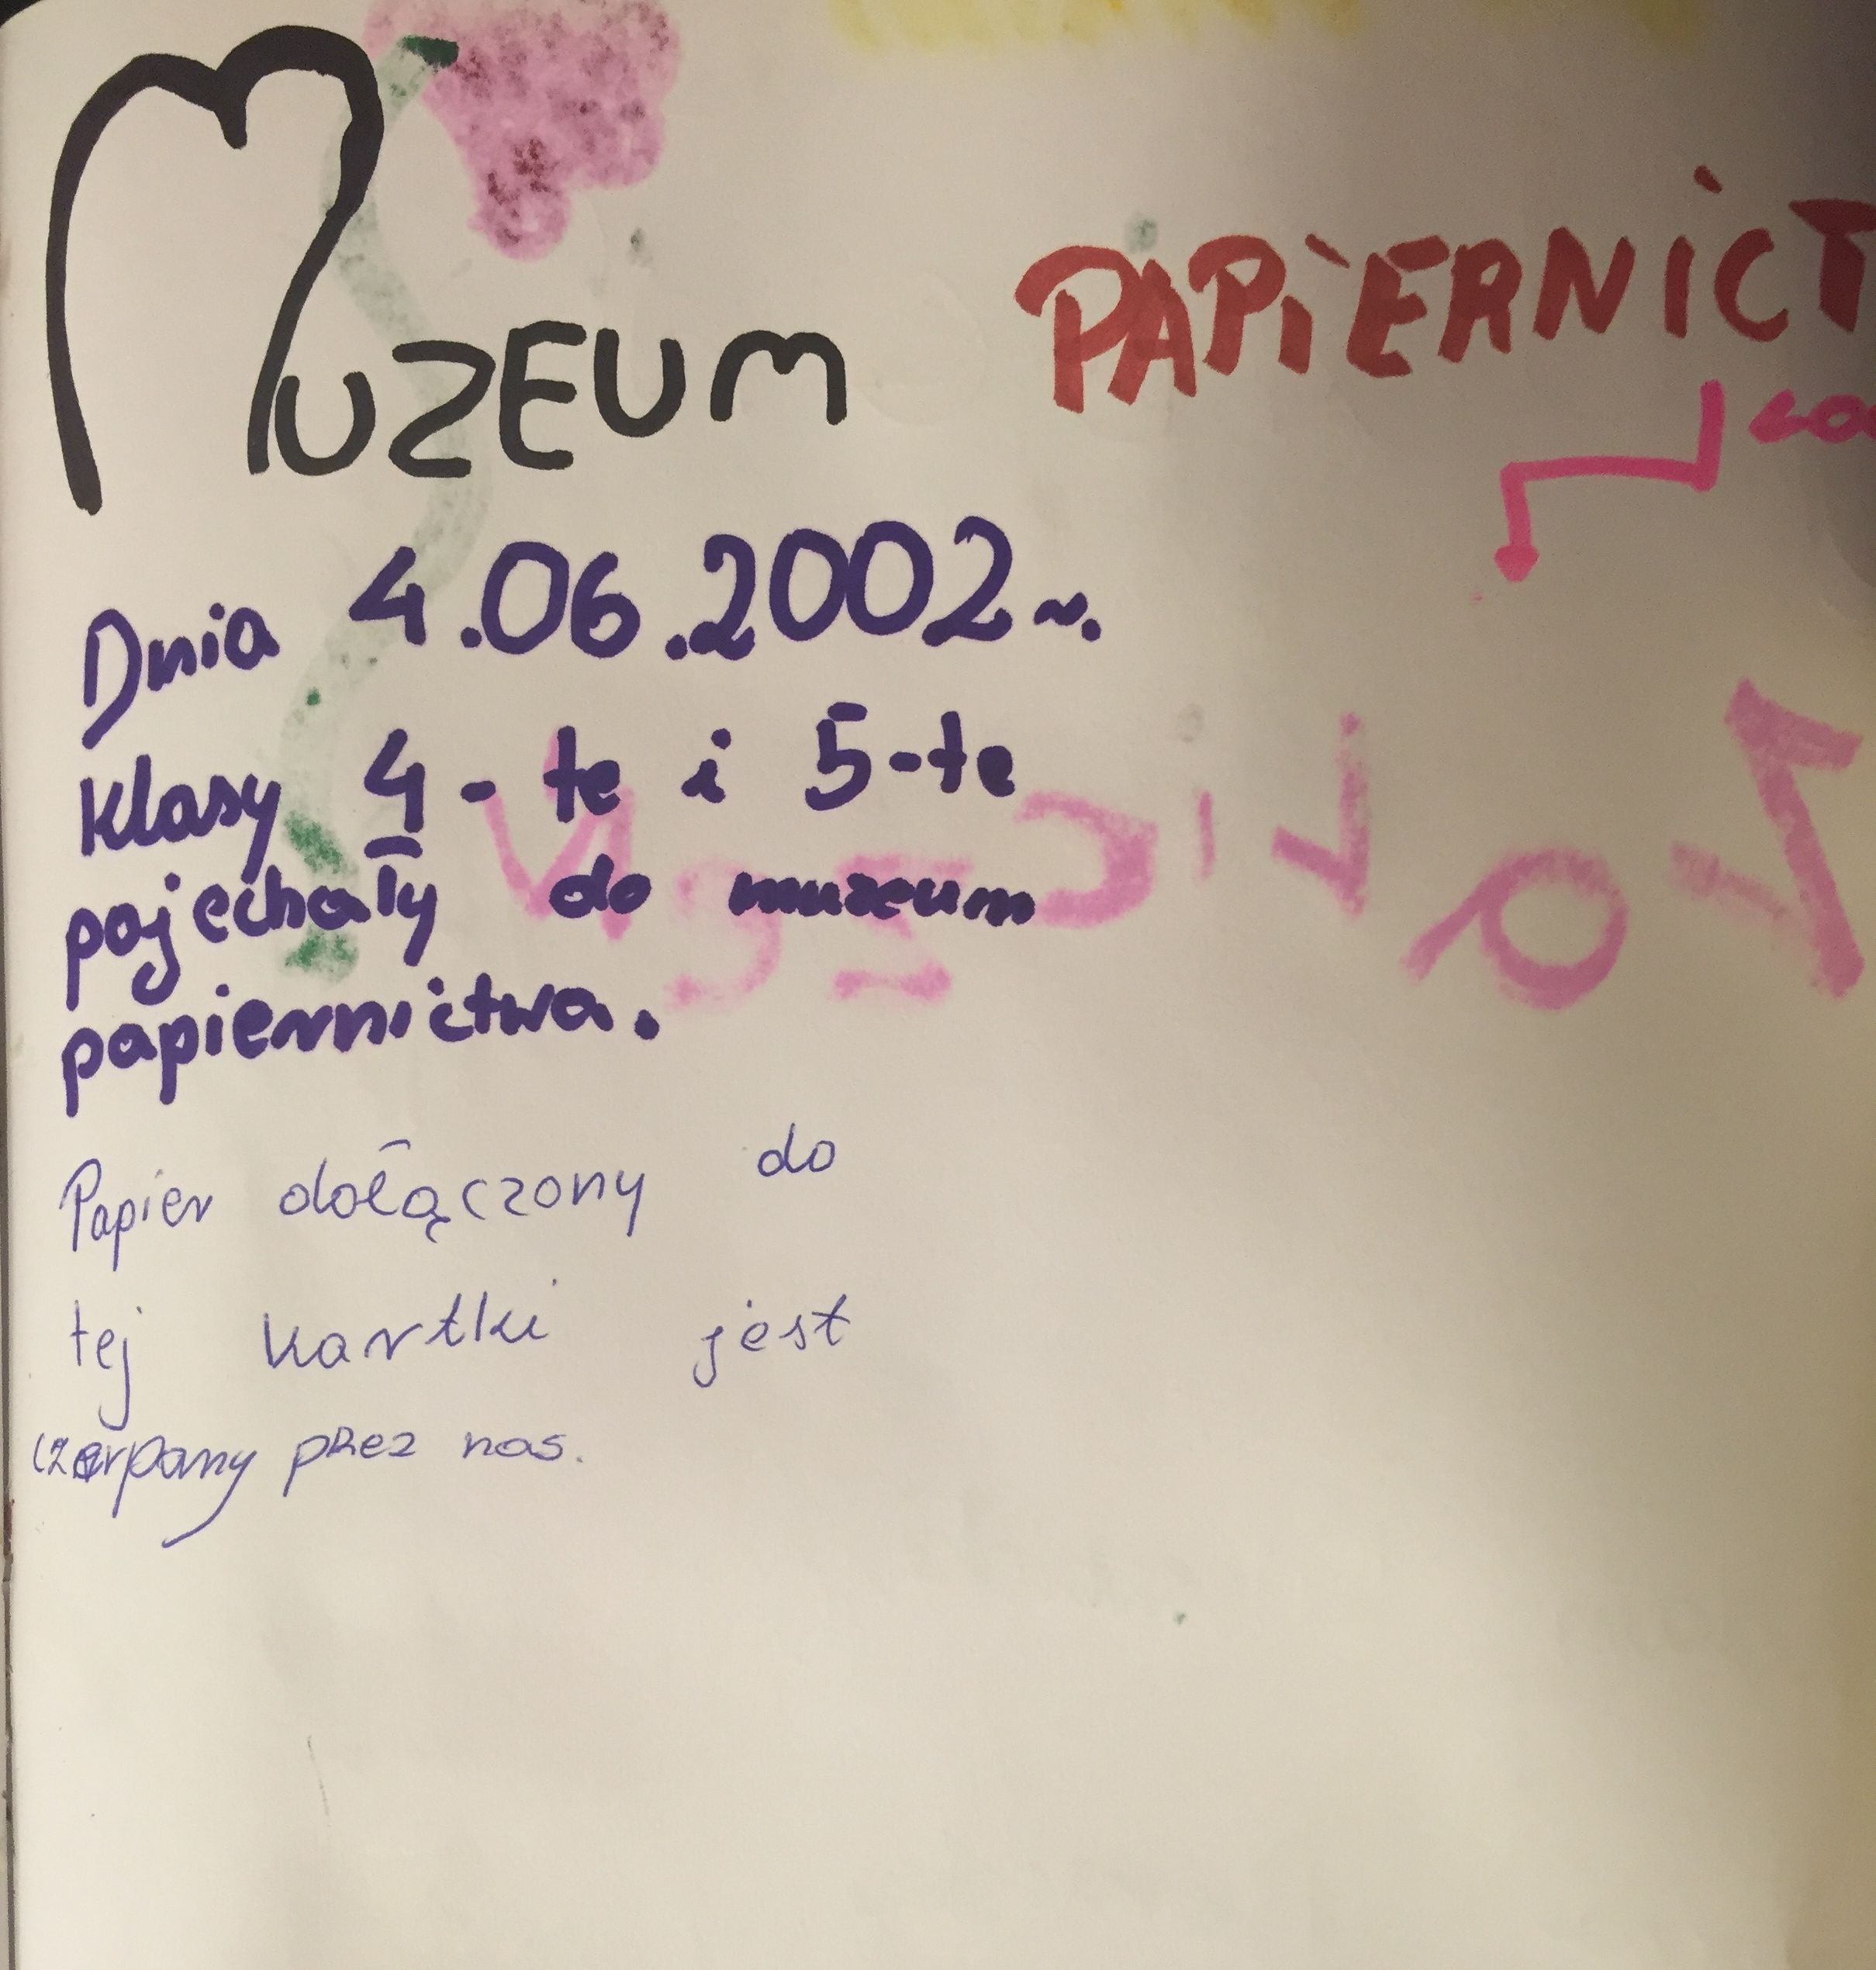 MUZEUM PAPIERNICT
Dnia 4.06.2002r.
Klasy 4-te i 5-te
pojechały do muzeum
papiernictwa.
Papier dołączony do
tej kartki jest
czerpany przez nas.